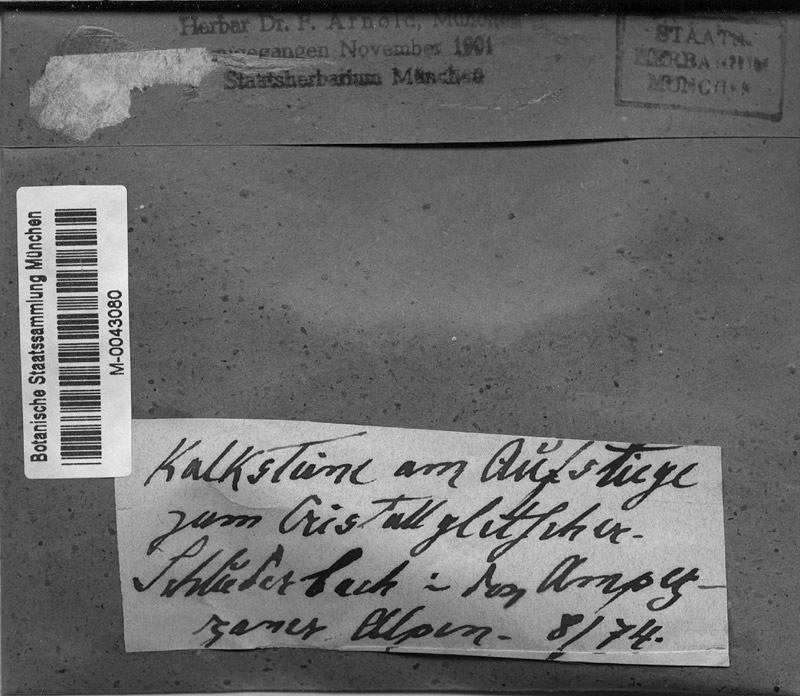 Herbar Dr. F. Arnold, München
eingegangen November 1901
Staatsherbarium München
STAATS-
HERBARIUM
MÜNCHEN
Botanische Staatssammlung München
M-0043080
Kalksteine am Aufstiege
zum Cristallgletscher.
Schluderbach in den Ampez-
zaner Alpen. 8/74.